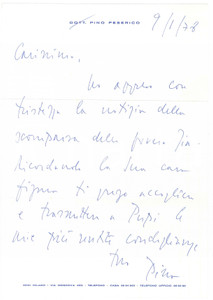 DOTT. PINO PESERICO
9/1/78
Carissimo,
ho appreso con
tristezza la notizia della
scomparsa della povera Pia.
Ricordando la Sua cara
figura ti prego accogliere
e trasmettere a Pupi le
mie più sentite condoglianze
Tuo Pino